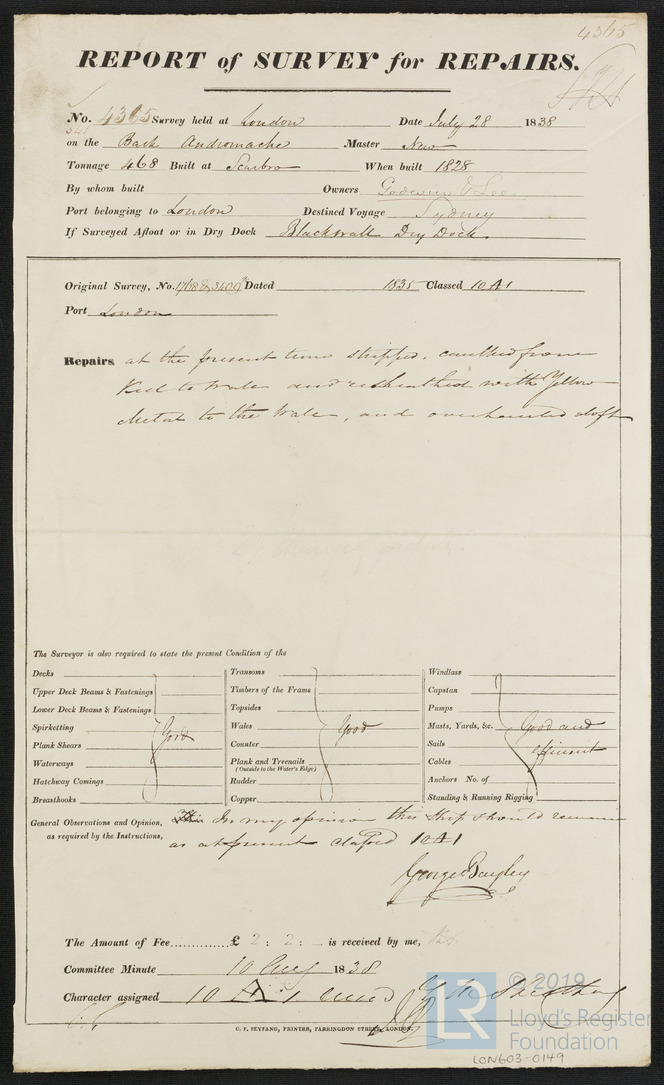 4365
REPORT of SURVEY for REPAIRS.
No. 4365 Survey held at London Date July 28 1838
541
on the Bark Andromache Master New
Tonnage 468 Built at Scarbro When built 1828
By whom built Owners Godwin & Lee
Port belonging to London Destined Voyage Sydney
If Surveyed Afloat or in Dry Dock Blackwall Dry Dock.
Original Survey, No. Dated 1835 Classed 10 A1
Port London
Repairs at the present time stripped, caulked from
Keel to Wales and resheathed with Yellow
Metal to the Wales, and overhauled aloft
The Surveyor is also required to state the present Condition of the
Decks
Upper Deck Beams & Fastenings
Lower Deck Beams & Fastenings
Spirketting
Plank Shears
Waterways
Hatchway Comings
Breasthooks
Good
Transoms
Timbers of the Frame
Topsides
Wales
Counter
Plank and Treenails
(Outside to the Water's Edge)
Rudder
Copper
Good
Windlass
Capstan
Pumps
Masts, Yards, &c.
Sails
Cables
Anchors No. of
Standing & Running Rigging
Good and
efficient
General Observations and Opinion, In my opinion this Ship should remain
as required by the Instructions, as at present classed 10 A1
George Bayley
The Amount of Fee............. £ 2 : 2 : – is received by me,
Committee Minute 10 Aug 1838
Character assigned 10 A 1
C. F. SEYFANG, PRINTER, FARRINGDON STREET, LONDON.
LR
© 2019
Lloyd's Register
Foundation
LON603-0149